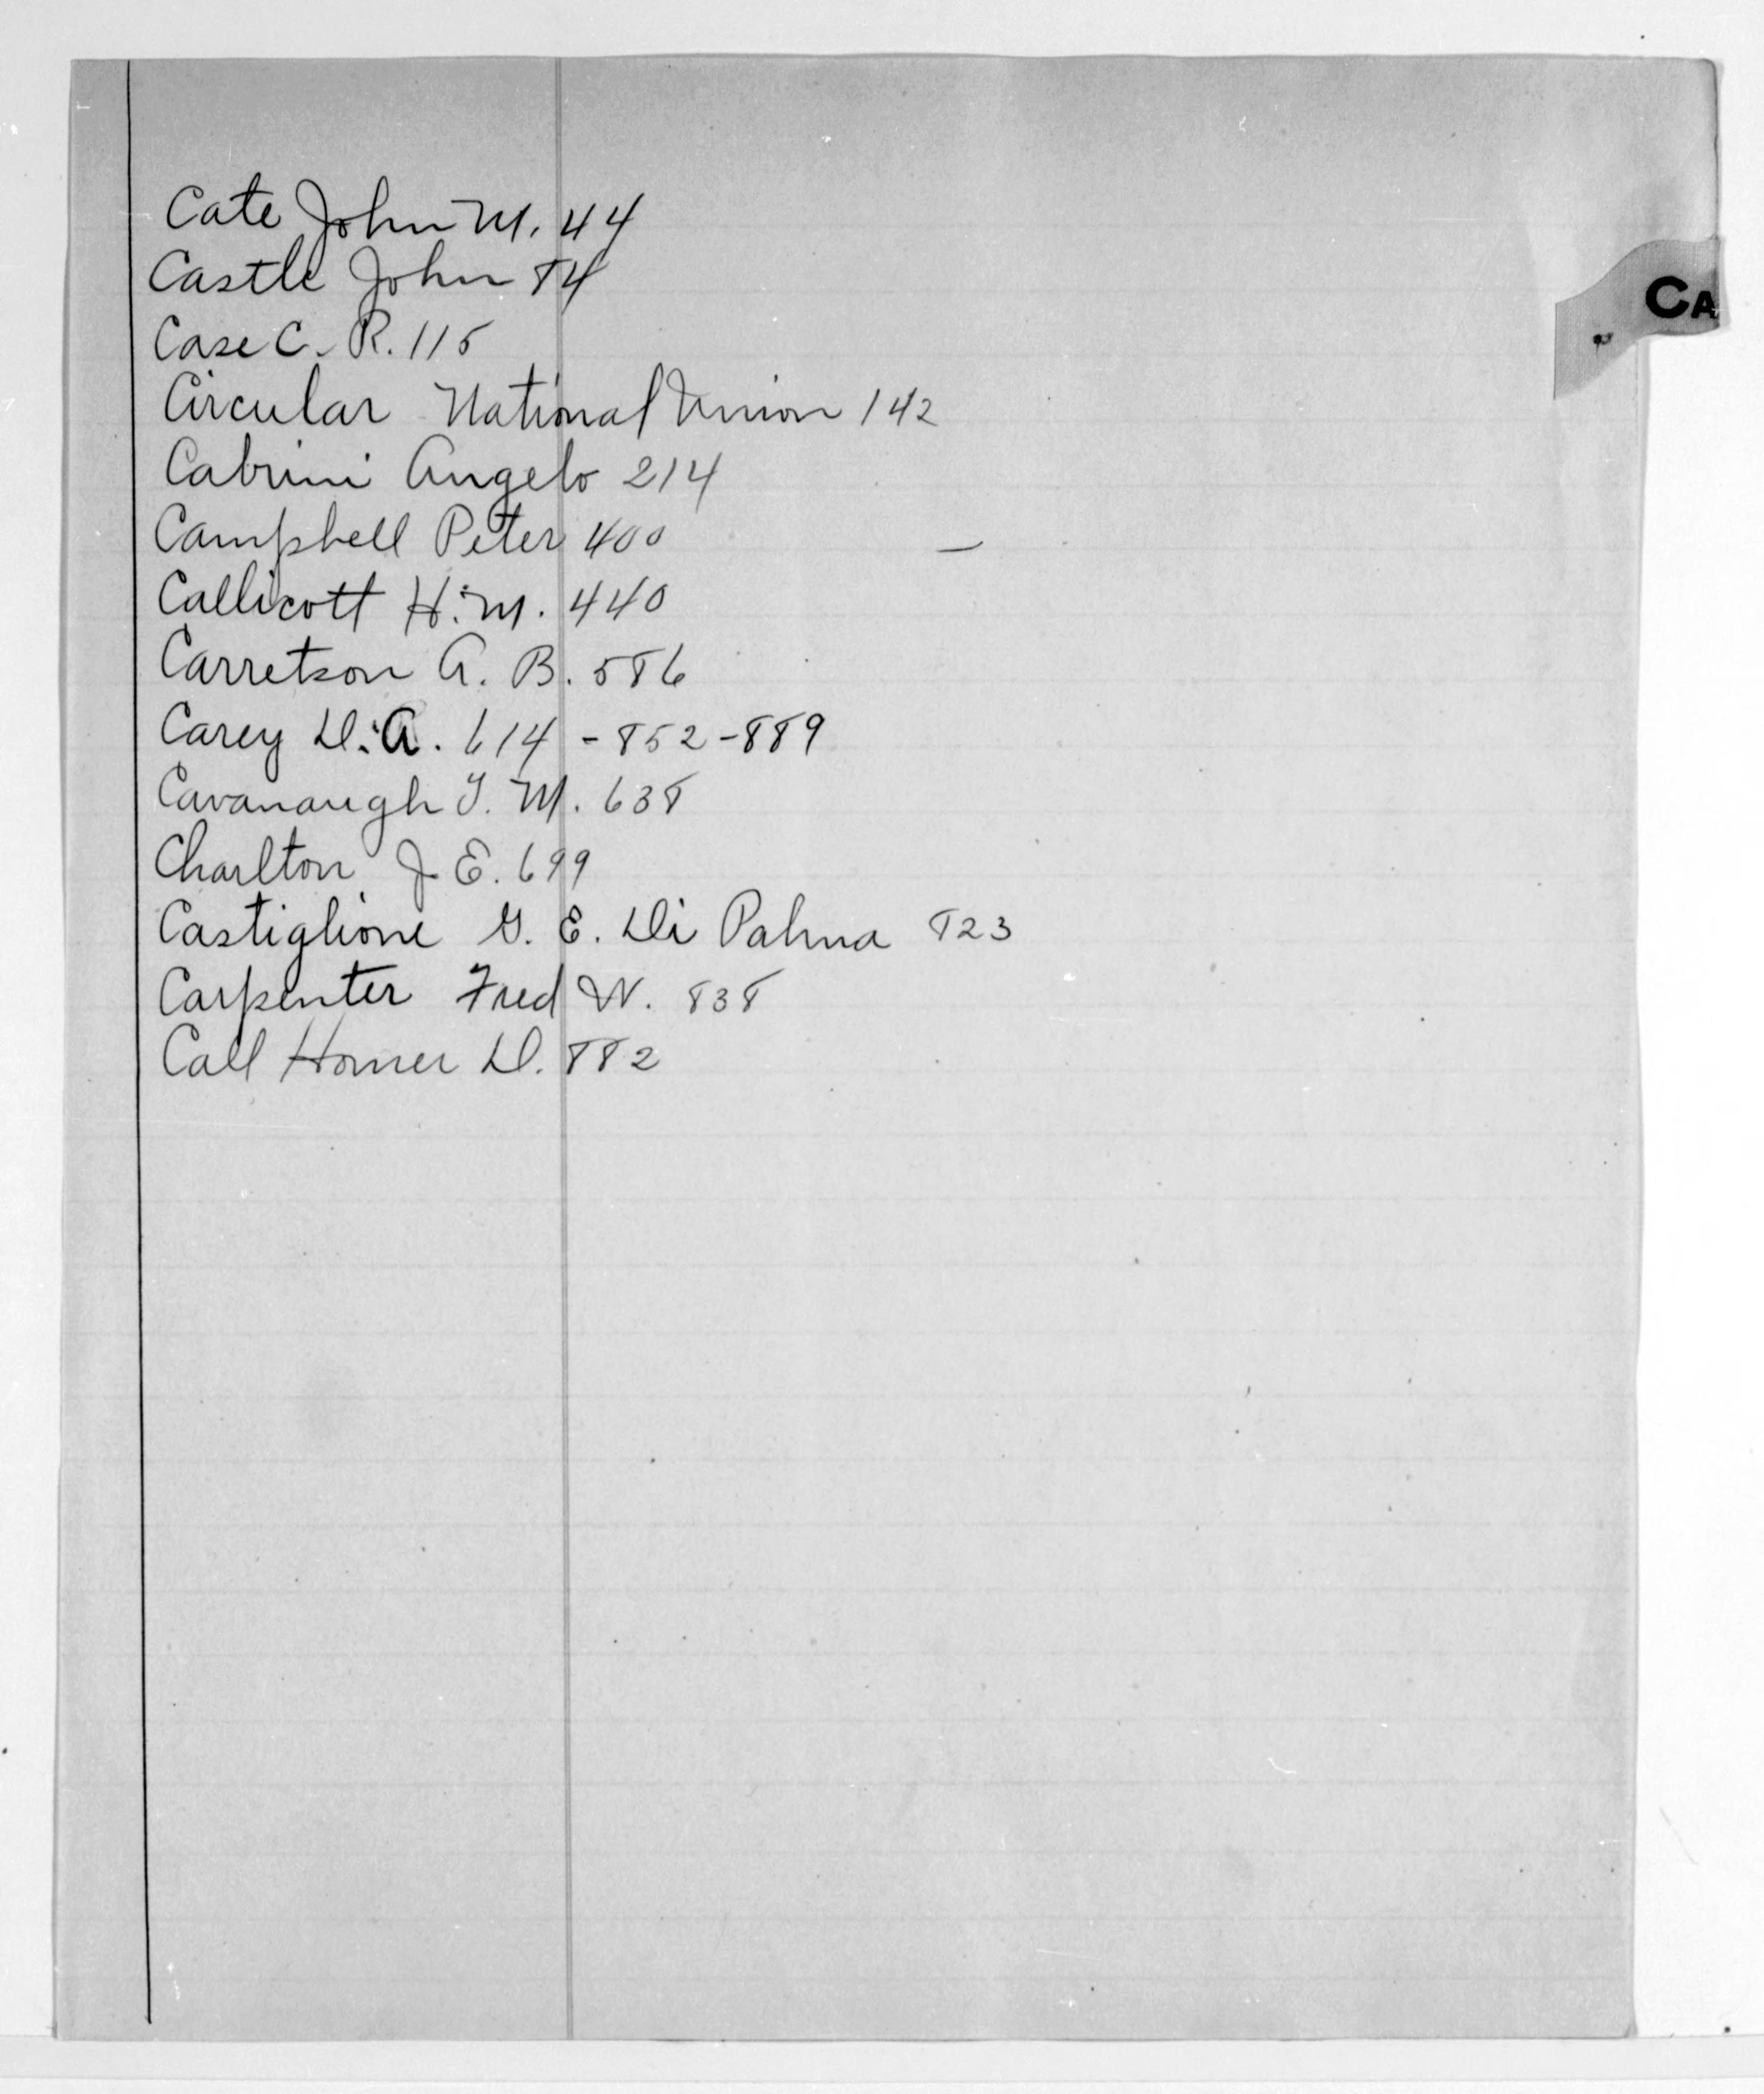 CA
Cate John M. 44
Castle John 84
Case C. R. 115
Circular National Union 142
Cabrini Angelo 214
Campbell Peter 400 —
Callicott H. M. 440
Carretson A. B. 586
Carey D. A. 614 - 852 - 889
Cavanaugh T. M. 638
Charlton J. E. 699
Castiglione G. E. Di Palma 823
Carpenter Fred W. 838
Call Homer D. 882